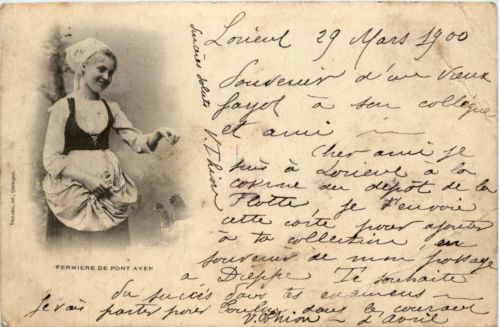 Lorient 29 Mars 1900
Souvenir d'un vieux
fayot à son collègue
et ami
Cher ami je
suis à Lorient à la
caserne du dépôt de la
Flotte, je t'envoie
cette carte pour ajouter
à ta collection, en
souvenir de mon passage
à Dieppe Je souhaite
du succès dans tes examens
je vais partir pour Toulon dans le courant
d'avril
V. Thion
Sincères saluts V. Thion
FERMIÈRE DE PONT AVEN